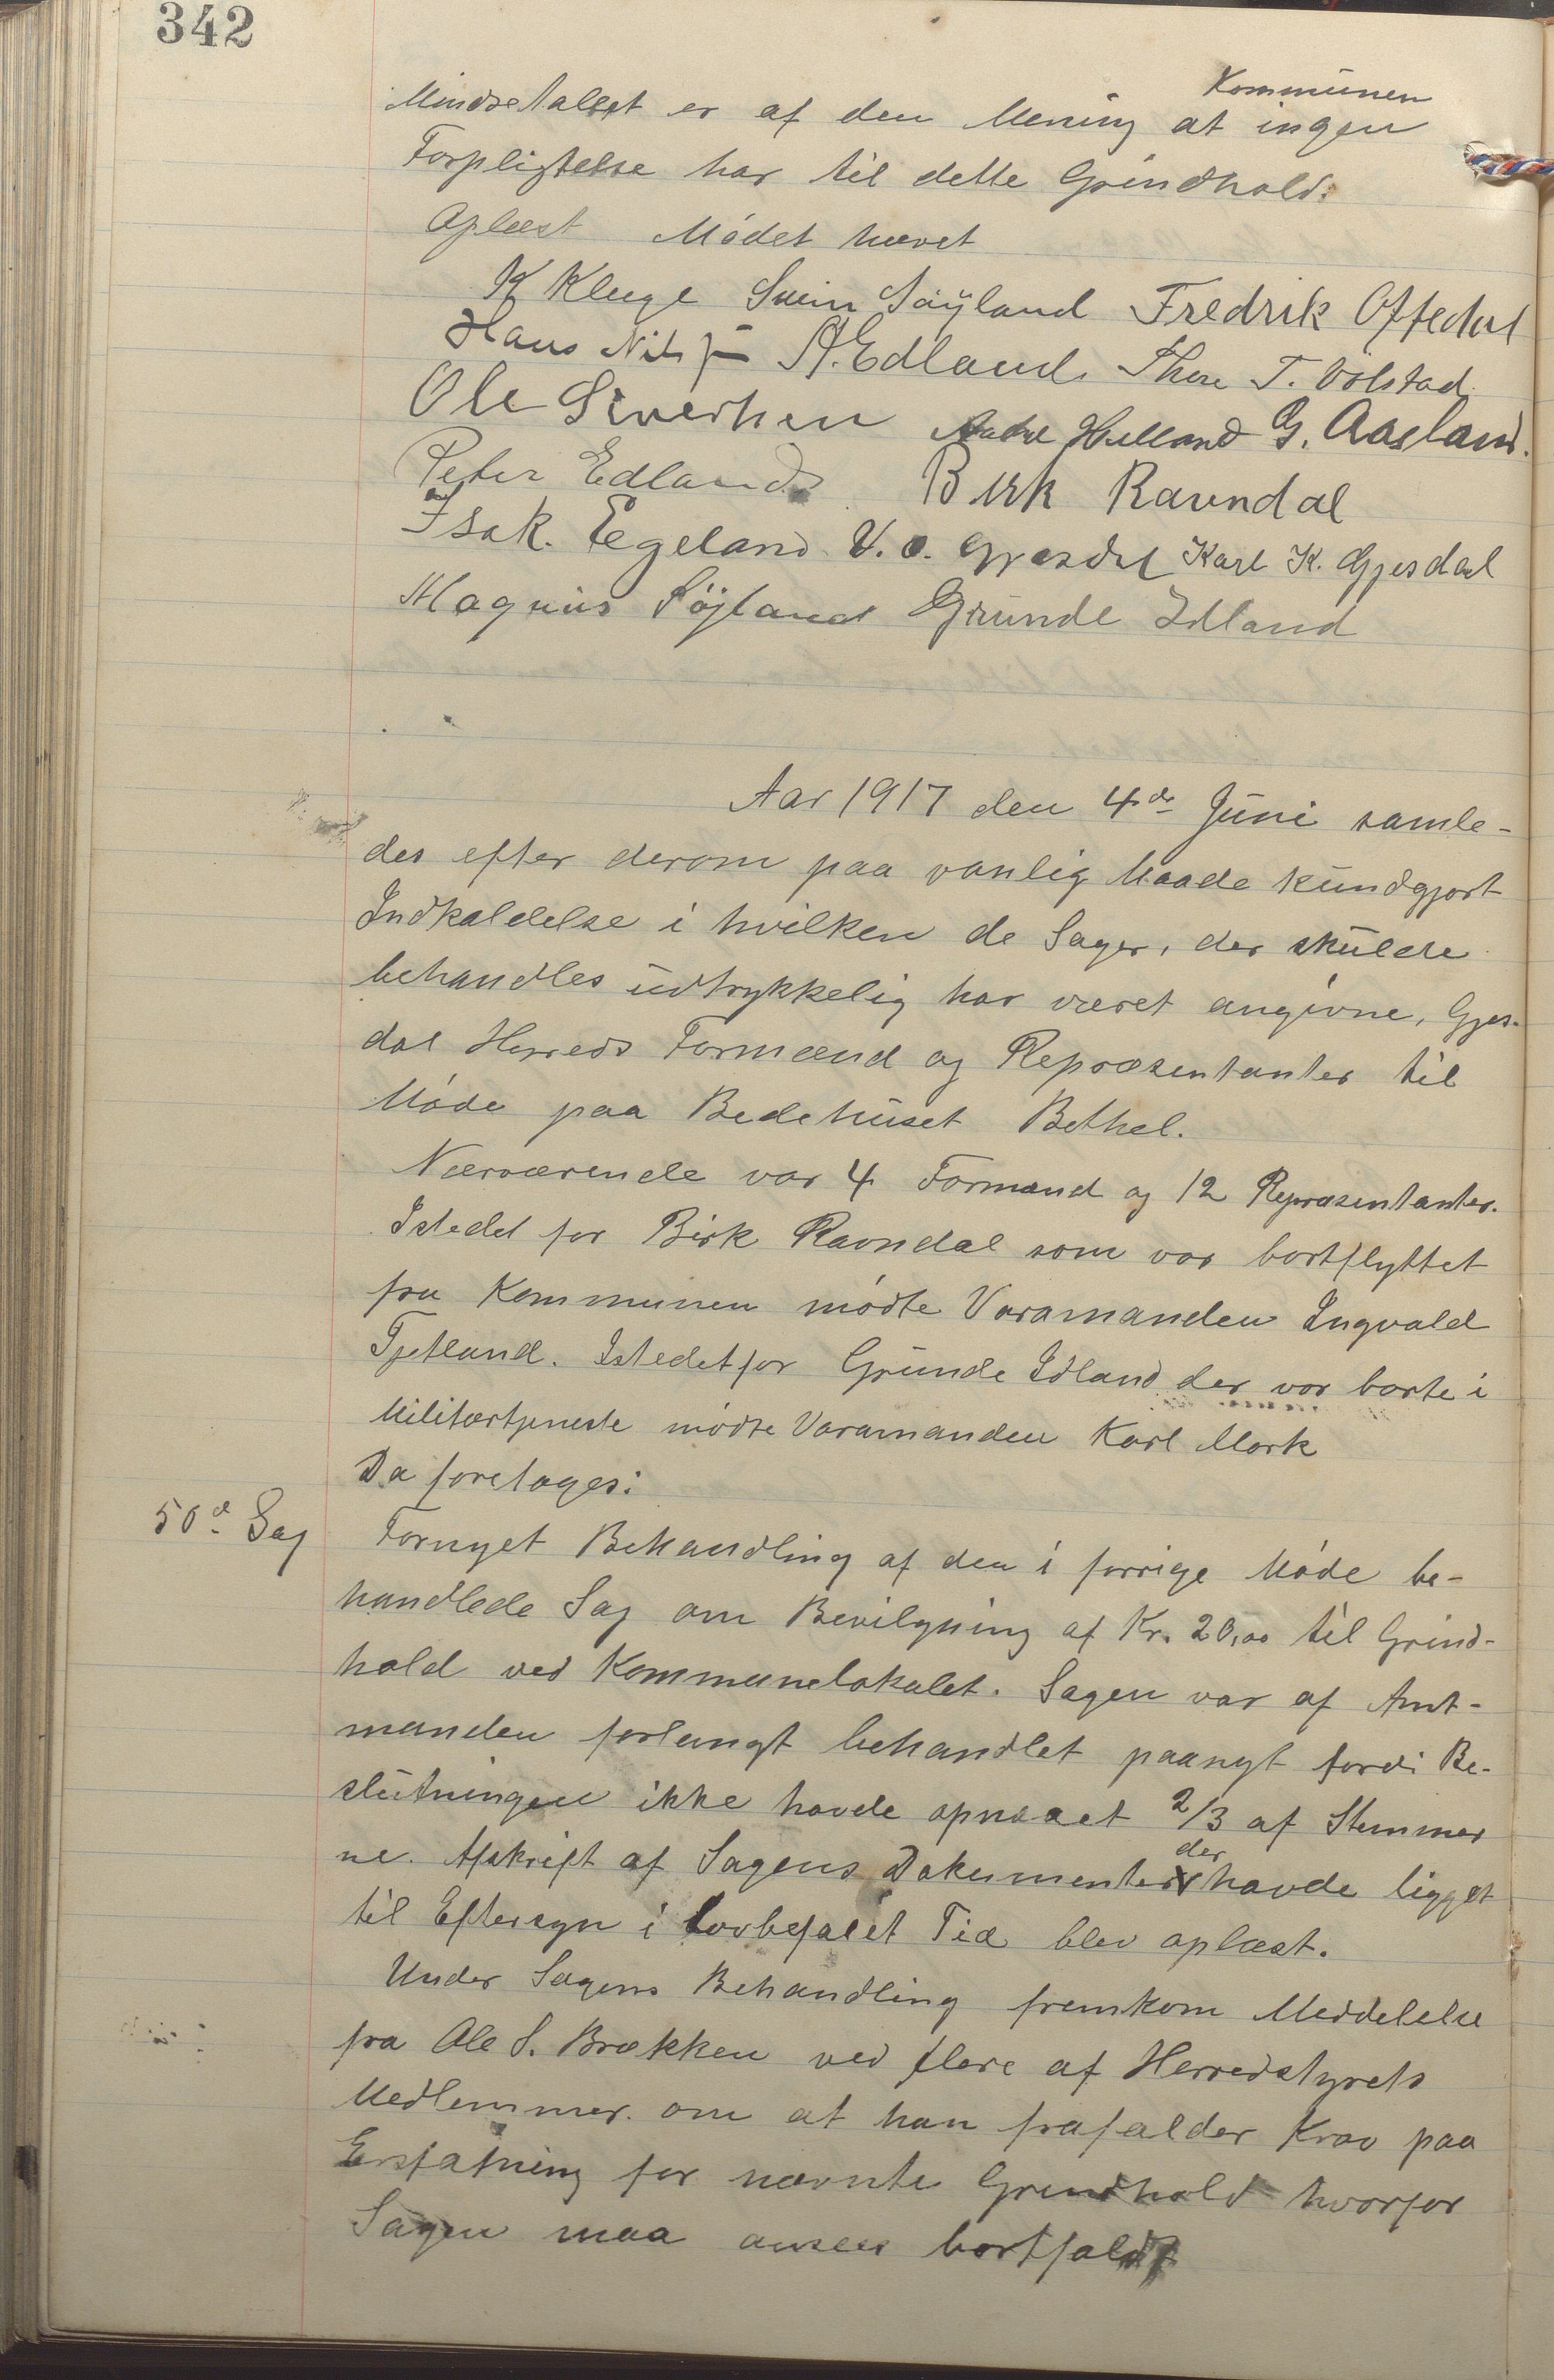 342
Mindretallet er af den Mening at Kommunen ingen
Forpligtelse har til dette Grindhold.
Oplæst Mødet hævet
K Kluge Svein Søyland Fredrik Oftedal
Hans Nils A. Edland Thore T. Ølstad
Ole Sivertsen Hølland G. Aasland.
Peter Edland Birk Ravndal
Isak Egeland V. O. Gjesdal Karl K. Gjesdal
Magnus Søjland Grunde Idland
Aar 1917 den 4de Juni samle-
des efter derom paa vanlig Maade kundgjort
Indkaldelse i hvilken de Sager, der skulde
behandles udtrykkelig har været angivne, Gjes-
dal Herreds Formænd og Repræsentanter til
Møde paa Bedehuset Bethel.
Nærværende var 4 Formænd og 12 Repræsentanter.
Istedet for Birk Ravndal som var bortflyttet
fra Kommunen mødte Varamanden Ingvald
Tjetland. Istedetfor Grunde Idland der var borte i
Militærtjeneste mødte Varamanden Karl Mork
Da foretages:
50d Sag Fornyet Behandling af den i forrige Møde be-
handlede Sag om Bevilgning af Kr. 20,00 til Grind-
hold ved Kommunelokalet. Sagen var af Amt-
manden forlangt behandlet paanyt fordi Be-
slutningen ikke havde opnaaet 2/3 af Stemmer
ne. Afskrift af Sagens Dokumenter der havde ligget
til Eftersyn i lovbefalet Tid blev oplæst.
Under Sagens Behandling fremkom Meddelelse
fra Ole S. Brækken ved flere af Herredstyrets
Medlemmer om at han frafalder Krav paa
Erstatning for nævnte Grindhold hvorfor
Sagen maa ansees bortfaldt